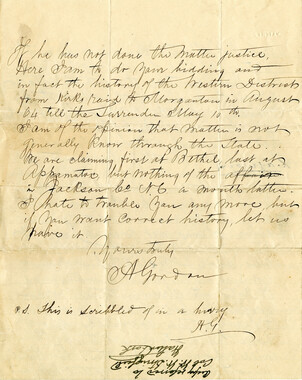 If he has not done the Matter justice,
Here I am to do your bidding and
in fact the history of the Western District
from Kirks raid to Morganton in August
64 till the Surrender May 10th.
I am of the opinion that Matter is not
generally know through the State.
We are claiming first at Bethel last at
Appamatox but nothing of the affair
in Jackson Co NC a month latter.
I hate to trouble you any more but
if you want correct history, let us
have it
Yours truly
A Gordon
P.S. This is scribbled of in a hurry
A G.
Col W. W.